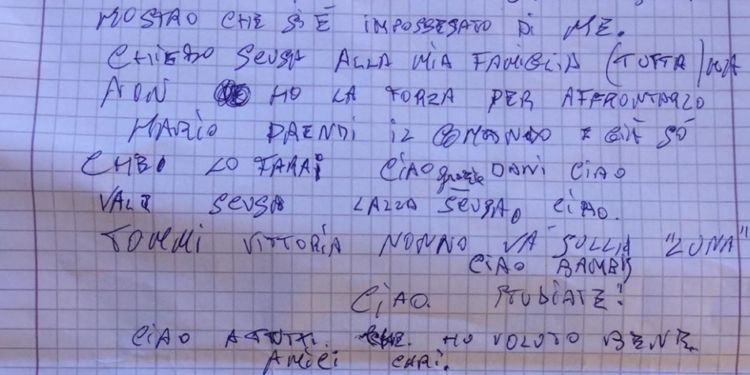 MOSTRO CHE SI È IMPOSSESSATO DI ME.
CHIEDO SCUSA ALLA MIA FAMIGLIA (TUTTA) MA
NON HO LA FORZA PER AFFRONTARLO
MARIO PRENDI IL COMANDO E GIÀ SO
CHE LO FARAI CIAO grazie DANI CIAO
VALE SCUSA LALLA SCUSA, CIAO.
TOMMI VITTORIA NONNO VA SULLA "LUNA"
CIAO BAMBI
CIAO STUDIATE!
CIAO A TUTTI. HO VOLUTO BENE
AMICI CARI.